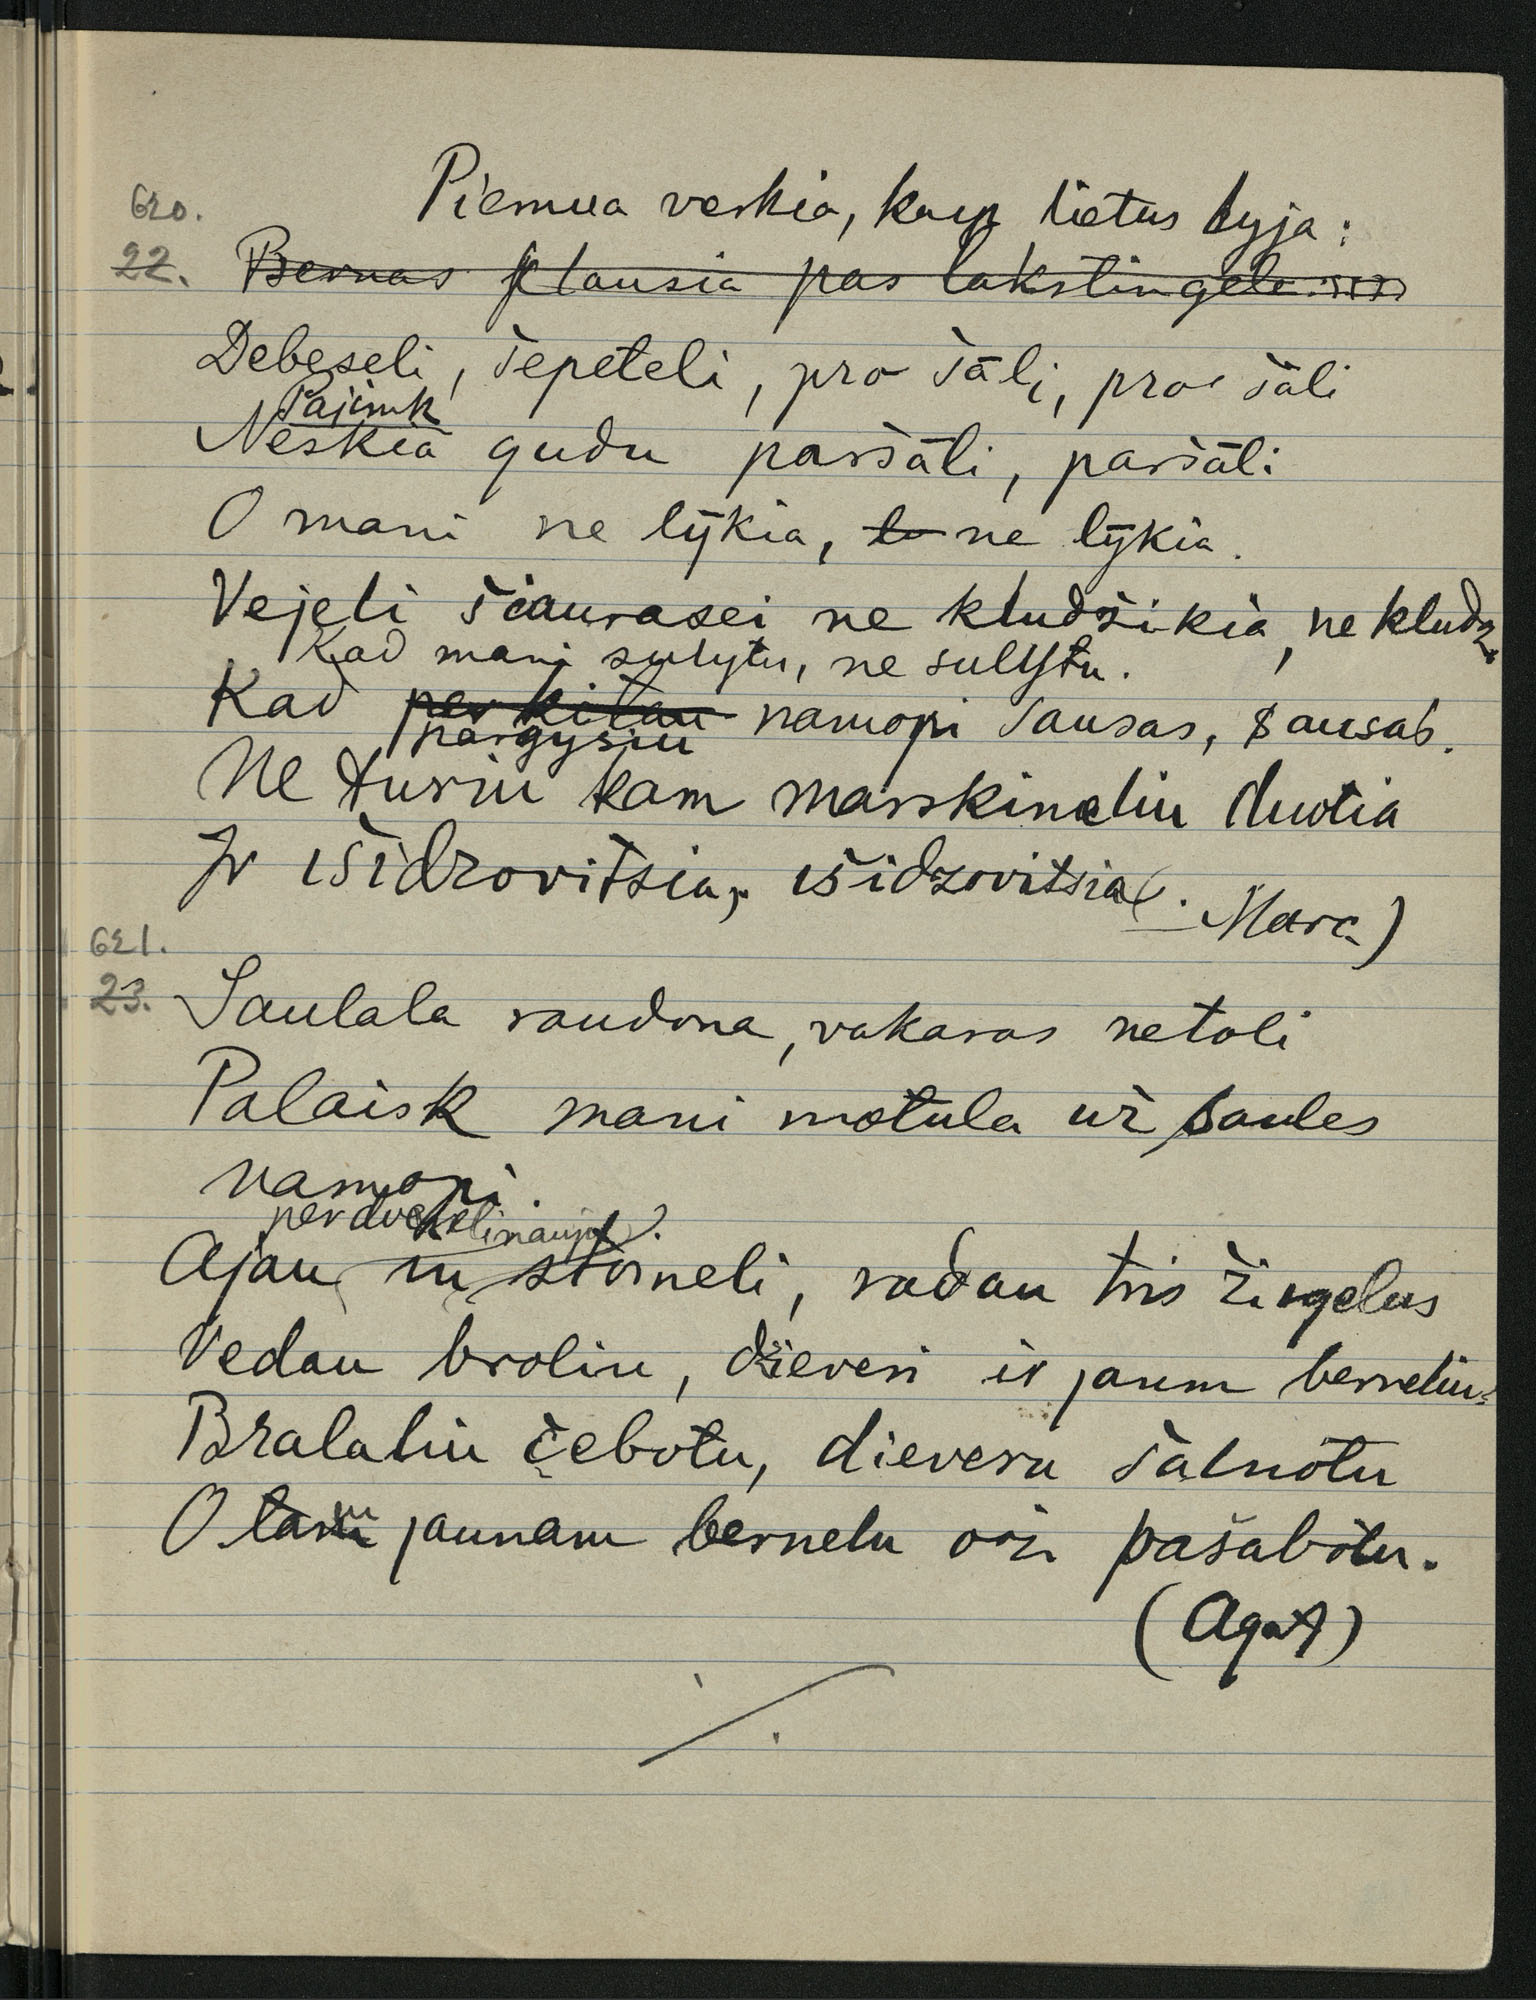 620. Piemua verkia, kaip lietus lyja:
22. Bernas klausia pas lakstingele
Debeseli, šepeteli, pro šāli, pro šāli
Pajimk
Neskia gudu paršāli, paršāli
O mani ne lȳkia, to ne lȳkia.
Vejeli šiaurasei ne kludžikia, ne kludz
Kad mani sulytu, ne sulytu.
Kad per kitau namopi sausas, sausas.
pargysiu
Ne turiu kam marskineliu duotia
Ir išidzovitsia, išidzovitsia (Mare)
621.
23. Saulala raudona, vakaras netoli
Palaisk mani motula už saules
namopi.
per dvekelinauja
Ajau in stoineli, radau tris žirgelus
Vedau broliu, džieveri ir jaunu berneliu
Bralaliu čebotu, dieveru šalnotu
O tam jaunam bernelu pašabotu.
(Agat)